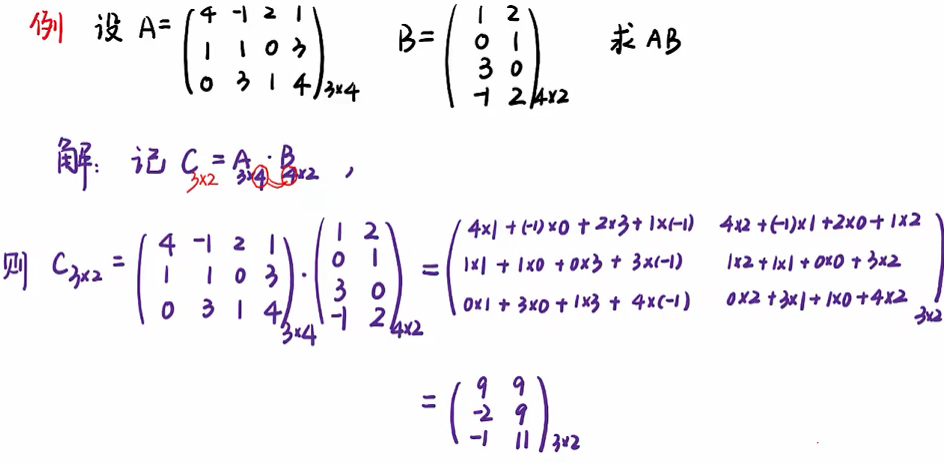 例 设 A = \begin{pmatrix} 4 & -1 & 2 & 1 \\ 1 & 1 & 0 & 3 \\ 0 & 3 & 1 & 4 \end{pmatrix}_{3×4} B = \begin{pmatrix} 1 & 2 \\ 0 & 1 \\ 3 & 0 \\ -1 & 2 \end{pmatrix}_{4×2} 求 AB
解: 记 C_{3×2} = A_{3×4} · B_{4×2} ,
则 C_{3×2} = \begin{pmatrix} 4 & -1 & 2 & 1 \\ 1 & 1 & 0 & 3 \\ 0 & 3 & 1 & 4 \end{pmatrix}_{3×4} · \begin{pmatrix} 1 & 2 \\ 0 & 1 \\ 3 & 0 \\ -1 & 2 \end{pmatrix}_{4×2} = \begin{pmatrix} 4×1+(-1)×0+2×3+1×(-1) & 4×2+(-1)×1+2×0+1×2 \\ 1×1+1×0+0×3+3×(-1) & 1×2+1×1+0×0+3×2 \\ 0×1+3×0+1×3+4×(-1) & 0×2+3×1+1×0+4×2 \end{pmatrix}_{3×2}
= \begin{pmatrix} 9 & 9 \\ -2 & 9 \\ -1 & 11 \end{pmatrix}_{3×2}